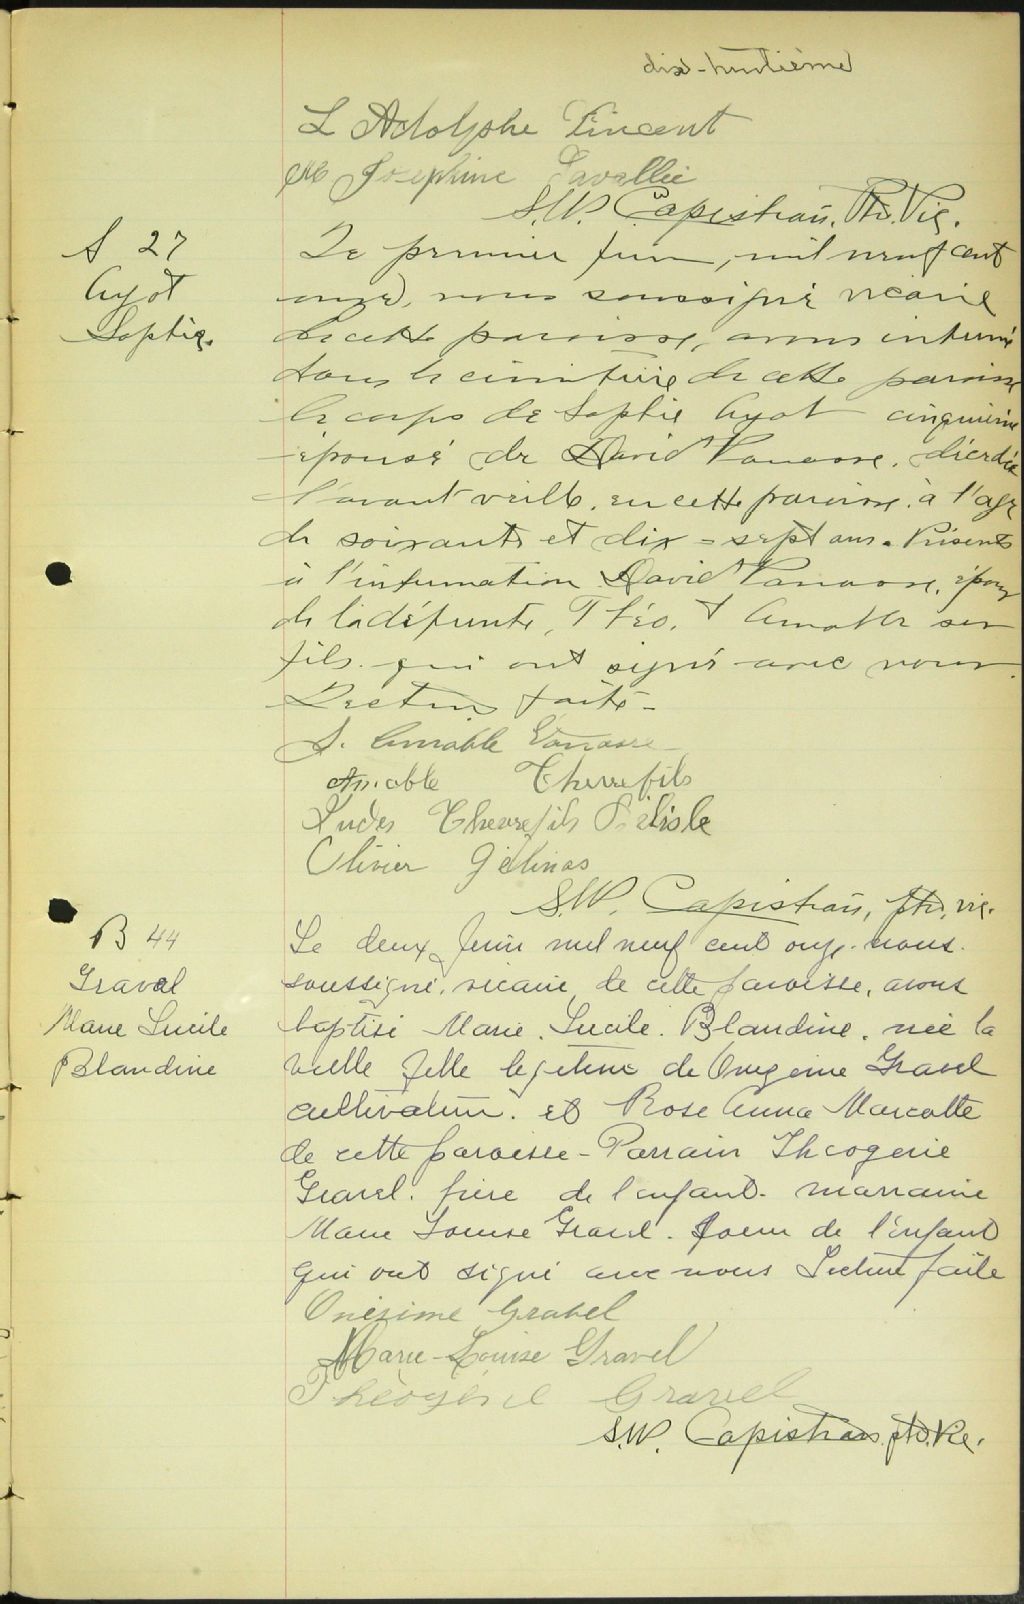 dix-huitième
L Adolphe Vincent
M Josephine Lavallée
S.W. Capistran, Ptr. Vic.
S 27
Ayot
Sophie.
Le premier juin, mil neuf cent
onze, nous soussigné vicaire
de cette paroisse, avons inhumé
dans le cimetière de cette paroisse
le corps de Sophie Ayot cinquième
épouse de David Vanasse, décédée
l'avant veille, en cette paroisse, à l'age
de soixante et dix-sept ans. Présents
à l'inhumation David Vanasse, époux
de la défunte, Théo. & Amable ses
fils qui ont signé avec nous.
Lecture faite -
S. Amable Vanasse
Amable Therrefils
Therrefils Bélisle
Olivier Gélinas
S.W. Capistran, ptr, vic.
B 44
Gravel
Marie Lucile
Blandine
Le deux Juin mil neuf cent onze. nous
soussigné, vicaire, de cette paroisse, avons
baptisé Marie. Lucile. Blandine. née la
veille fille legitime de Onezime Gravel
cultivateur. et Rose Anna Marcotte
de cette paroisse - Parrain Theogenie
Gravel. frère de l'enfant. marraine
Marie Louise Gravel. Soeur de l'enfant
qui ont signé avec nous Lecture faite
Onésime Gravel
Marie-Louise Gravel
Théogène Gravel
S.W. Capistran ptr. Vic.